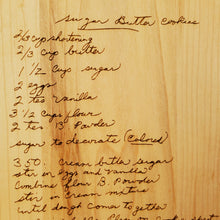 Sugar Butter Cookies
2/3 cup shortening
2/3 cup butter
1 1/2 cup sugar
2 eggs
2 tes vanilla
3 1/2 cups flour
2 tes B Powder
sugar to decorate (Colored)
350. Cream butter sugar
stir in eggs and vanilla
Combine flour B. Powder
stir in Cream mixture
until dough comes together